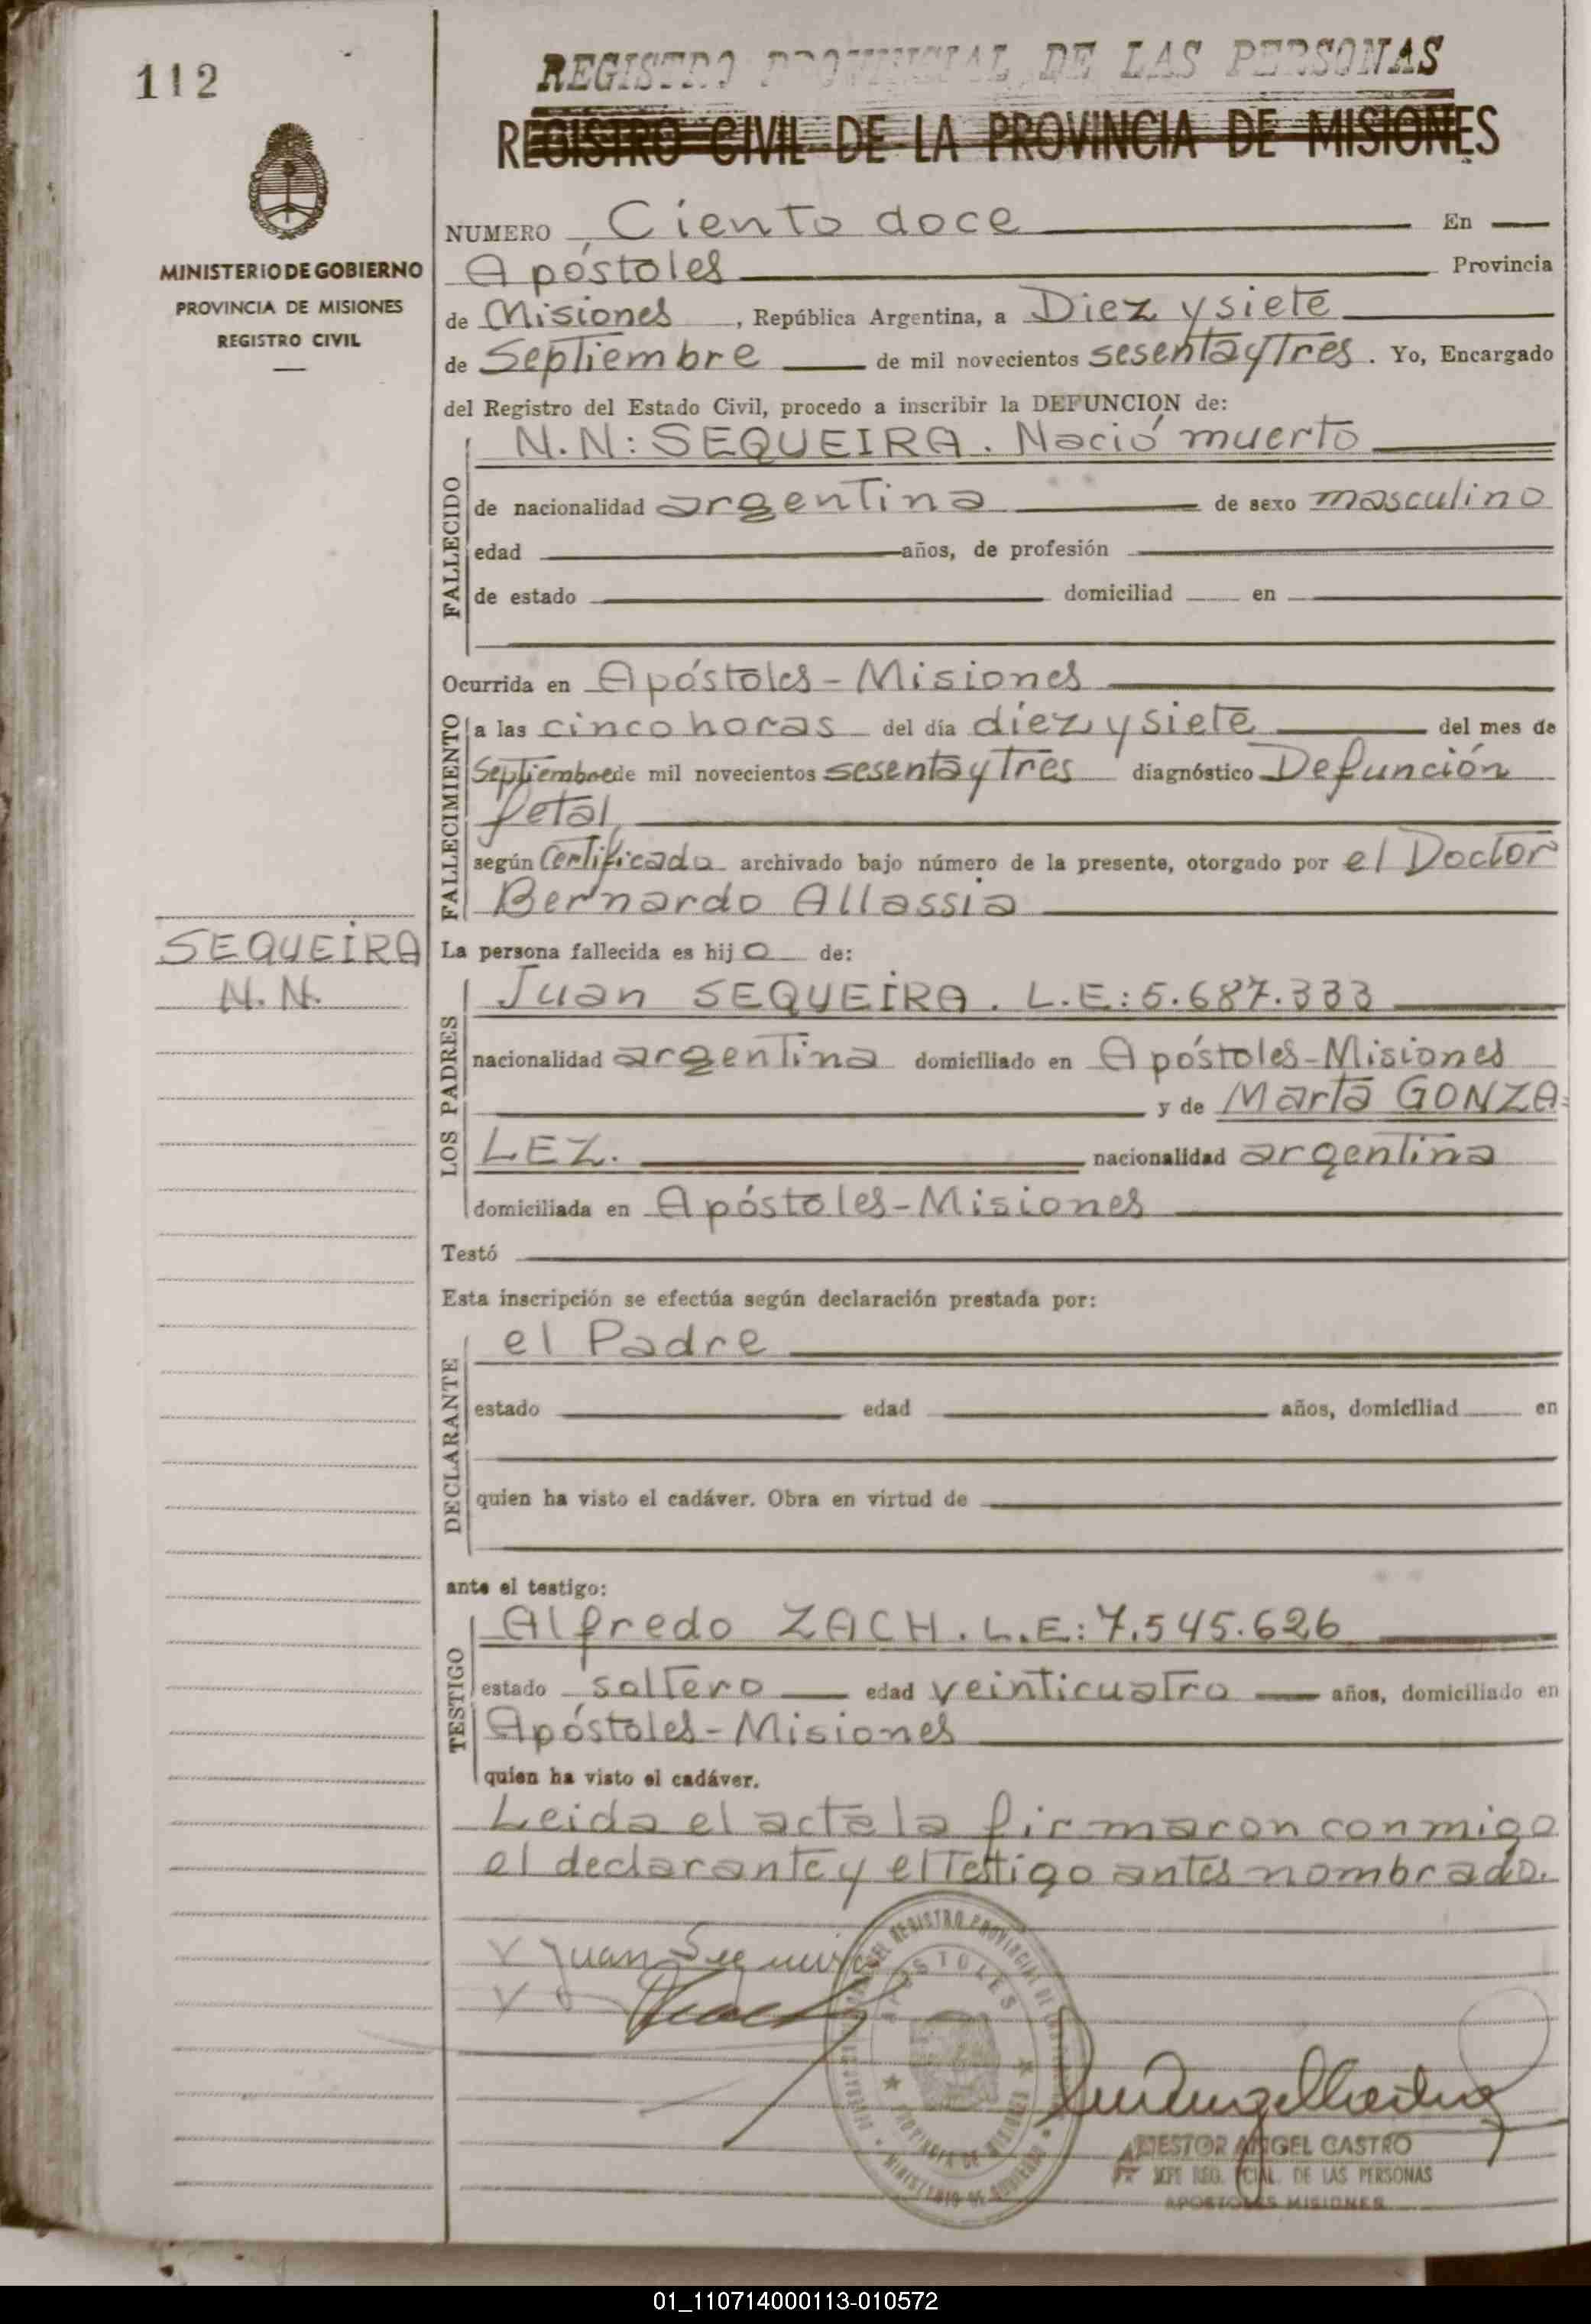 112
REGISTRO PROVINCIAL DE LAS PERSONAS
REGISTRO CIVIL DE LA PROVINCIA DE MISIONES
MINISTERIO DE GOBIERNO
PROVINCIA DE MISIONES
REGISTRO CIVIL
NUMERO Ciento doce En
Apóstoles Provincia
de Misiones, República Argentina, a Diez y siete
de Septiembre de mil novecientos sesenta y Tres. Yo, Encargado
del Registro del Estado Civil, procedo a inscribir la DEFUNCION de:
FALLECIDO
N.N: SEQUEIRA. Nació muerto
de nacionalidad argentina de sexo masculino
edad años, de profesión
de estado domiciliad en
Ocurrida en Apóstoles - Misiones
FALLECIMIENTO
a las cinco horas del día diez y siete del mes de
Septiembre de mil novecientos sesenta y Tres diagnóstico Defunción
fetal
según Certificado archivado bajo número de la presente, otorgado por el Doctor
Bernardo Allassia
SEQUEIRA
N.N.
La persona fallecida es hijo de:
LOS PADRES
Juan SEQUEIRA. L.E: 5.687.333
nacionalidad argentina domiciliado en Apóstoles-Misiones
y de Marta GONZA=
LEZ. nacionalidad argentina
domiciliada en Apóstoles-Misiones
Testó
Esta inscripción se efectúa según declaración prestada por:
DECLARANTE
el Padre
estado edad años, domiciliad en
quien ha visto el cadáver. Obra en virtud de
ante el testigo:
TESTIGO
Alfredo ZACH. L.E: 7.545.626
estado soltero edad veinticuatro años, domiciliado en
Apóstoles - Misiones
quien ha visto el cadáver.
Leida el acta la firmaron conmigo
el declarante y el Testigo antes nombrado.
Juan Sequeira
REGISTRO PROVINCIAL DE
APOSTOLES
PROVINCIA DE MISIONES
MINISTERIO DE GOBIERNO
NESTOR ANGEL CASTRO
REG. PCIAL. DE LAS PERSONAS
APOSTOLES MISIONES
01_110714000113-010572